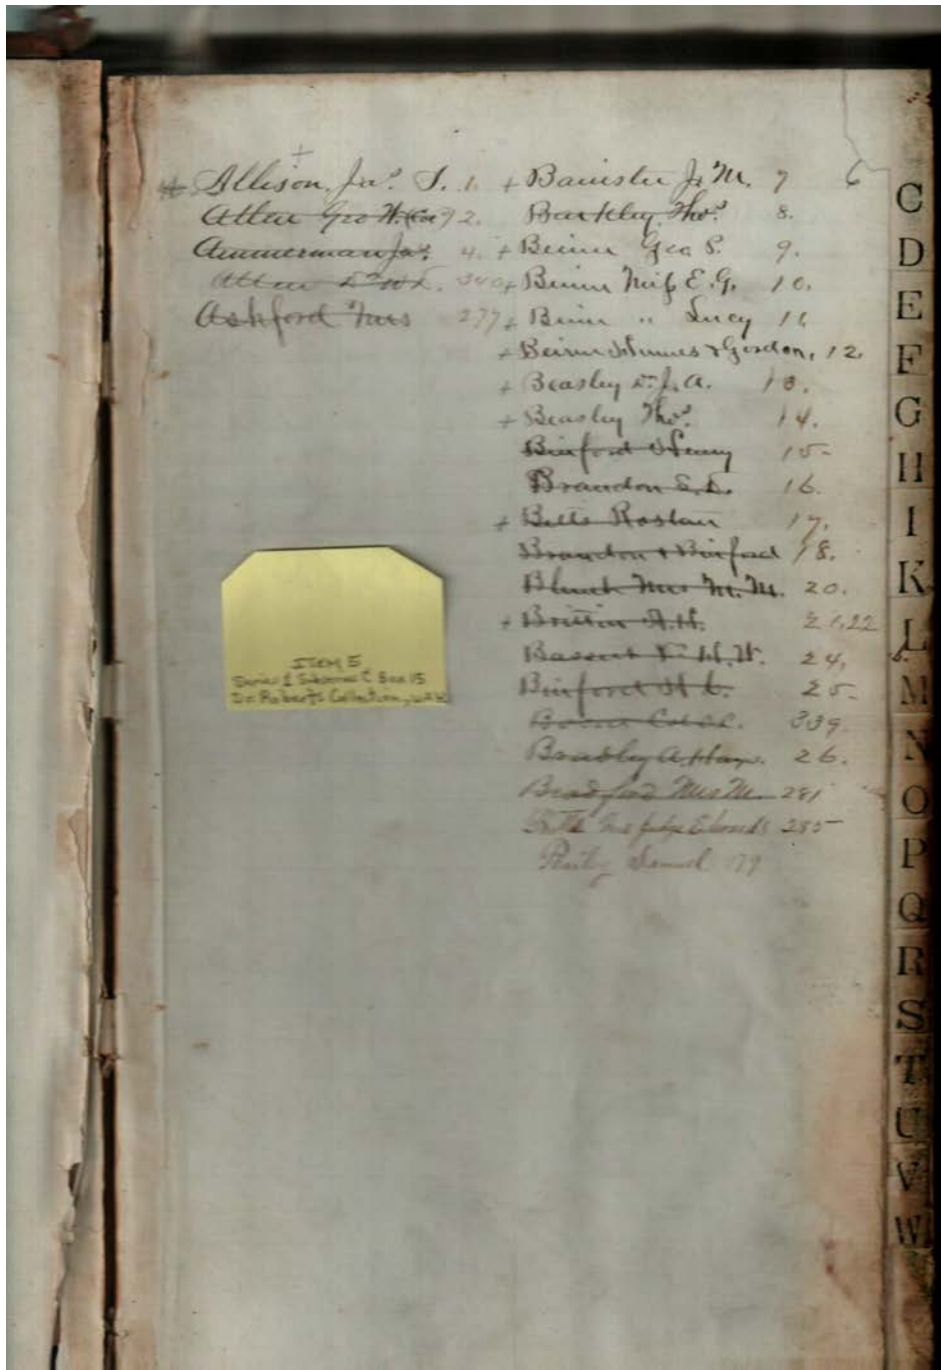 Allison, Jas. S. 1.
Allen Geo W. (Co) 2.
Ammerman Jas. 4.
Allen Dr W 340
Ashford Mrs 277
+ Banister Jno M. 7 6
Barkley Thos. 8.
+ Beirne Geo P. 9.
+ Beirne Miss E. G. 10.
+ Beirne " Lucy 11
+ Beirne & Gordon, 12
+ Beasley Dr. J. A. 13.
+ Beasley Thos. 14.
Binford 15
Brandon 16.
+ Betts Rostan 17.
Brandon & Binford 18.
Blunt Mrs M. M. 20.
+ Brittin A. H. 21,22
Bassett Dr H. W. 24,
Binford H C. 25
339
Bradley A. Hay. 26.
Bradford Mrs M. 281
Mrs Judge 285
Samuel 179
ITEM 5
Series 1 Subseries C Box 15
Dr. Roberts Collection,
C
D
E
F
G
H
I
K
L
M
N
O
P
Q
R
S
T
U
V
W